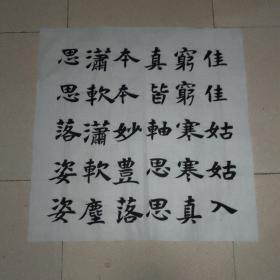 佳佳姑姑入
窮窮寒寒真
真皆軸思思
本本妙豊落
瀟軟瀟軟塵
思思落姿姿